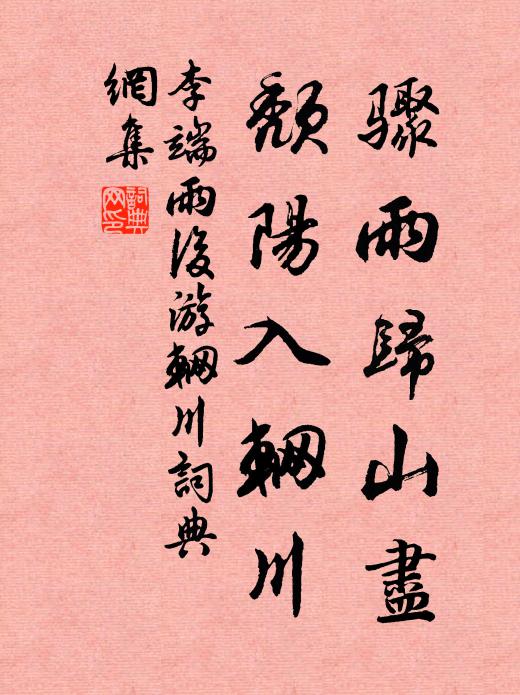 驟雨歸山盡
頹陽入輞川
李端雨後游輞川詞典
網集
詞典
网印